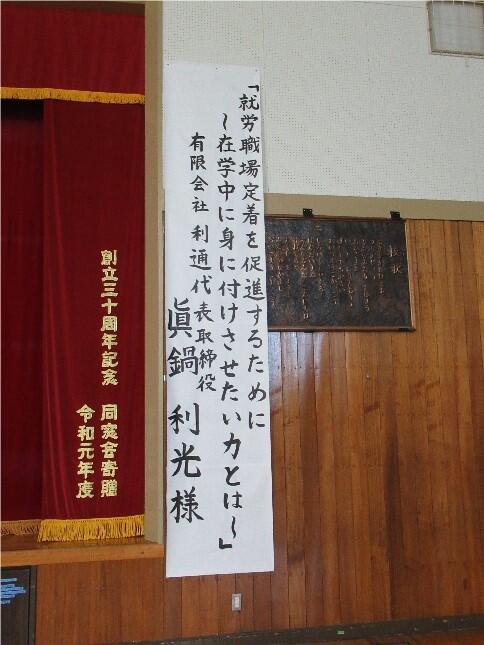 「就労職場定着を促進するために
～在学中に身に付けさせたい力とは～」
有限会社 利通代表取締役
眞鍋 利光様
校訳
創立三十周年記念 同窓会寄贈
令和元年度